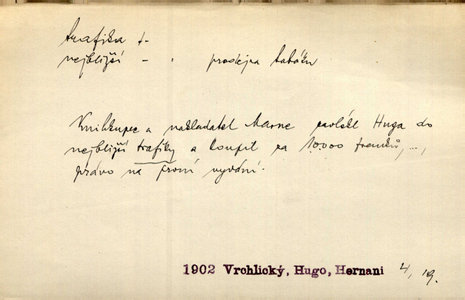 trafika f.
nejbližší - " prodejna tabáku
Knihkupec a nakladatel Mame zavlékl Huga do
nejbližší trafiky a koupil za 10.000 franků, ...,
právo na první vydání.
1902 Vrchlický, Hugo, Hernani 4, 19.